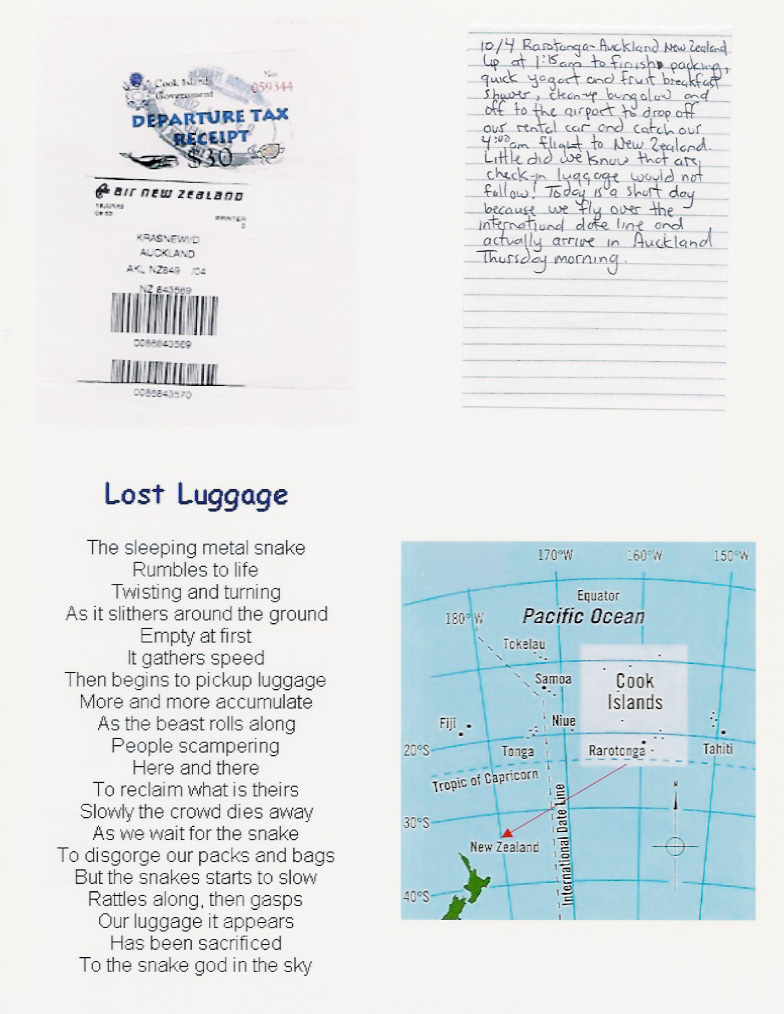 Cook Islands
Government
No.
059344
DEPARTURE TAX
RECEIPT
$30
AIR NEW ZEALAND
PRINTER
KRASNEW/D
AUCKLAND
AKL NZ849 /04
NZ 843569
0086843569
0086843570
10/4 Rarotonga-Auckland New Zealand
Up at 1:15am to finish packing,
quick yogart and fruit breakfast
shower, clean-up bungalow and
off to the airport to drop off
our rental car and catch our
4:00am flight to New Zealand.
Little did we know that are
check-in luggage would not
follow! Today is a short day
because we fly over the
international date line and
actually arrive in Auckland
Thursday morning.
Lost Luggage
The sleeping metal snake
Rumbles to life
Twisting and turning
As it slithers around the ground
Empty at first
It gathers speed
Then begins to pickup luggage
More and more accumulate
As the beast rolls along
People scampering
Here and there
To reclaim what is theirs
Slowly the crowd dies away
As we wait for the snake
To disgorge our packs and bags
But the snakes starts to slow
Rattles along, then gasps
Our luggage it appears
Has been sacrificed
To the snake god in the sky
170°W 160°W 150°W
Equator
180° W
Pacific Ocean
Tokelau
Samoa
Cook
Islands
Fiji
Niue
20°S
Tonga
Rarotonga
Tahiti
Tropic of Capricorn
International Date Line
30°S
New Zealand
40°S